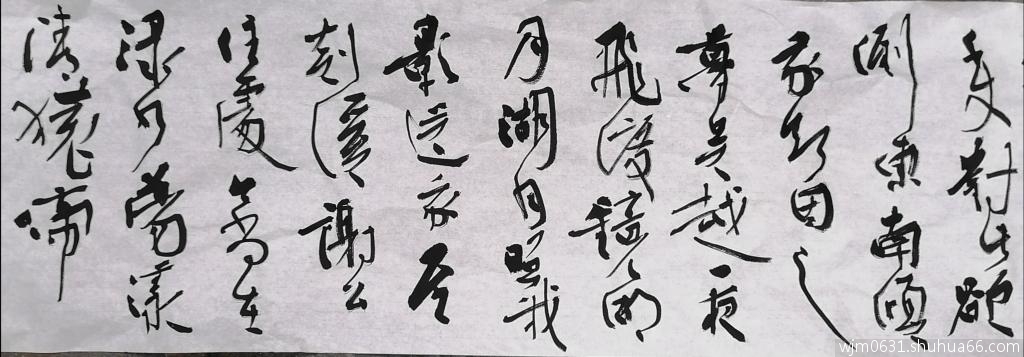 千丈對此欲
倒東南傾
我欲因之
夢吴越一夜
飛渡鏡湖
月湖月照我
影送我至
剡溪謝公
住處今尚在
渌水蕩漾
清猿啼
wjm0631.shuhua66.com